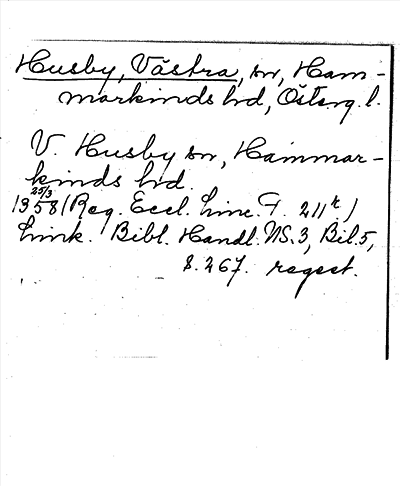 Husby, Västra, sn, Ham-
markinds hd, Östерg. l.
V. Husby sn, Hammar-
kinds hd.
25/3
1358 (Reg. Eccl. Linc. F. 211r)
Link. Bibl. Handl. NS. 3, Bil. 5,
s. 267. regest.